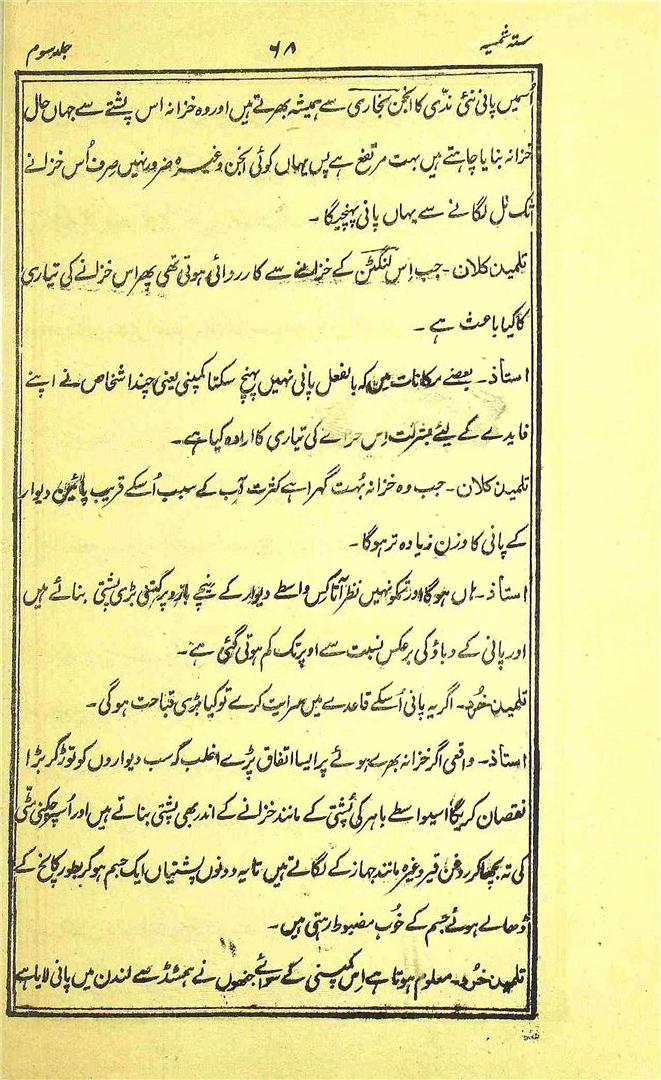 ستہ شمسیہ ۶۸ جلد سوم
اُسمیں پانی نئی ندّی کا انجن بخاری سے ہمیشہ بھرتے ہیں اور وہ خزانہ اس پشتے سے جہاں حال
خزانہ بنایا چاہتے ہیں بہت مرتفع ہے پس یہاں کوئی انجن وغیرہ ضرور نہیں صرف اُس خزانے
تک نل لگانے سے یہاں پانی پہنچیگا ۔
تلمیذ کلان ۔ جب اِس لنگٹن کے خزانے سے کارروائی ہوتی تھی پھر اس خزانے کی تیاری
کا کیا باعث ہے ۔
استاذ ۔ بعضے مکانات میں کہ بالفعل پانی نہیں پہنچ سکتا کمپنی یعنی چند اشخاص نے اپنے
فایدے کے لیئے بشراکت اِس خزانے کی تیاری کا ارادہ کیا ہے ۔
تلمیذ کلان ۔ جب وہ خزانہ بُہت گہرا ہے کثرت آب کے سبب اُسکے قریب پائین دیوار
کے پانی کا وزن زیادہ تر ہوگا ۔
استاذ ۔ ہاں ہوگا اور تمکو نہیں نظر آتا کس واسطے دیوار کے نیچے بازو پر کتنی بڑی پشتی بنائے ہیں
اور پانی کے دباؤ کی برعکس نسبت سے اوپر تک کم ہوتی گئی ہے ۔
تلمیذ خُرد ۔ اگر یہ پانی اُسکے قاعدے میں سرایت کرے تو کیا بڑی قباحت ہوگی ۔
استاذ ۔ واقعی اگر خزانہ بھرے ہوئے پر ایسا اتفاق پڑے اغلب کہ سب دیواروں کو توڑ کر بڑا
نقصان کریگا اسیواسطے باہر کی پُشتی کے مانند خزانے کے اندر بھی پشتی بناتے ہیں اور اُسپر چکنی مٹّی
کی تہ بچھا کر روغن قیر وغیرہ مانند جہاز کے لگاتے ہیں تا یہ دونوں پشتیاں ایک جسم ہو کر بطور کانچ کے
ڈھالے ہوئے جسم کے خُوب مضبوط رہتی ہیں ۔
تلمیذ خُرد ۔ معلوم ہوتا ہے اِس کمپنی کے سوائے جنھوں نے ہمشڈ سے لندن میں پانی لایا ہے